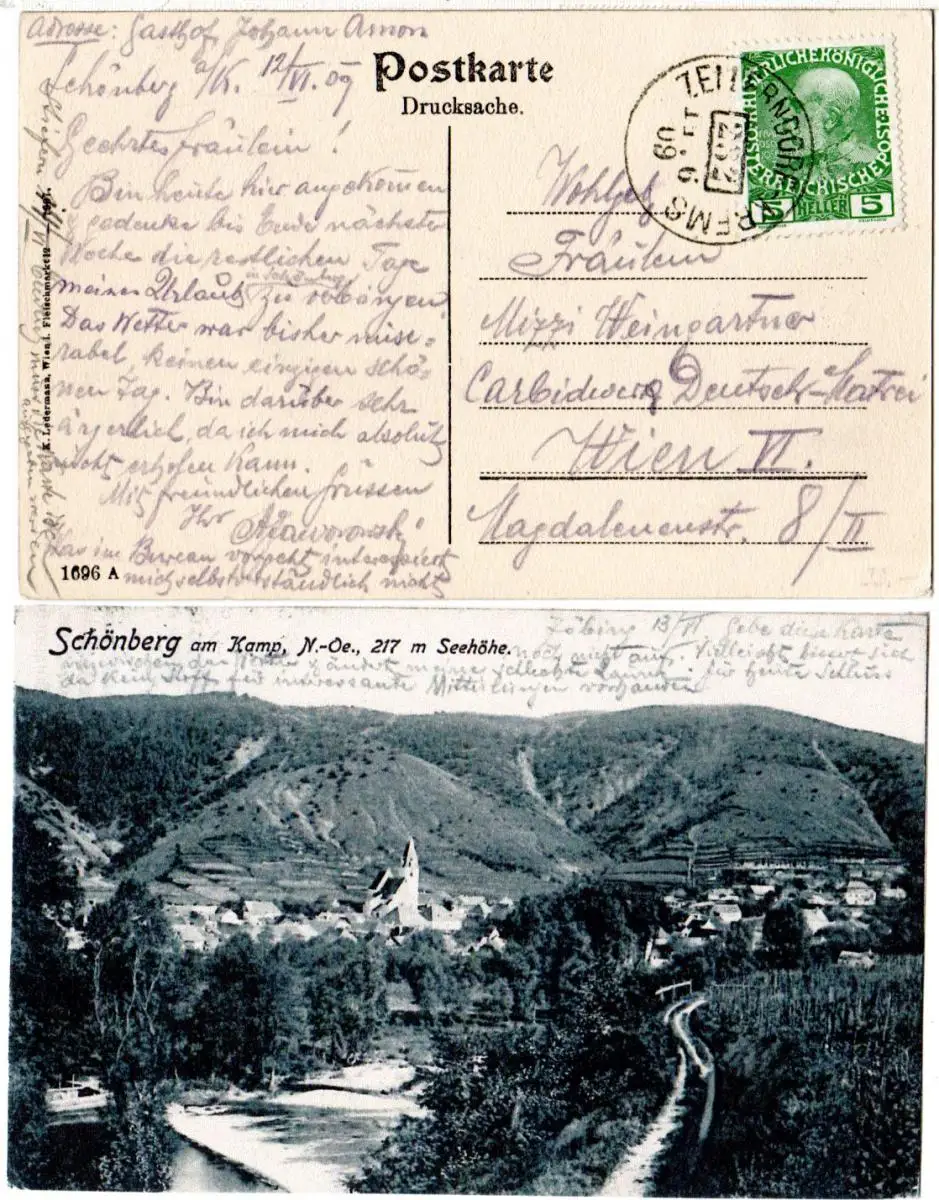 Adresse: Gasthof Johann Amon
Schönberg a/K. 12/VI. 09
Postkarte
Drucksache.
Geehrtes Fräulein!
Bin heute hier angekommen
gedenke bis Ende nächster
Woche die restlichen Tage
meines Urlaub in Schönberg zu
Das Wetter war bisher mise-
rabel, keinen einzigen schö-
nen Tag. Bin darüber sehr
ärgerlich, da ich mich absolut
nicht erholen kann.
Mit freundlichen Grüssen
Ihr
Das im Bureau vorgeht interessiert
mich selbstverständlich nicht
1696 A
K. Ledermann, Wien I. Fleischmarkt 12
ZELLERNDORF
KREMS
09
ÖSTERREICHISCHE POST
5 HELLER 5
Wohlgeb
Fräulein
Mizzi Weingartner
Carbidwerk Deutsch-Matrei
Wien VI.
Magdalenenstr. 8/II
Schönberg am Kamp, N.-Oe., 217 m Seehöhe.
Zöbing 13/VI Gebe diese Karte
noch nicht auf. Vielleicht bessert sich
inzwischen das Wetter & ändert meine schlechte Laune. Für heute Schluss
da kein Stoff für interessante Mitteilungen vorhanden